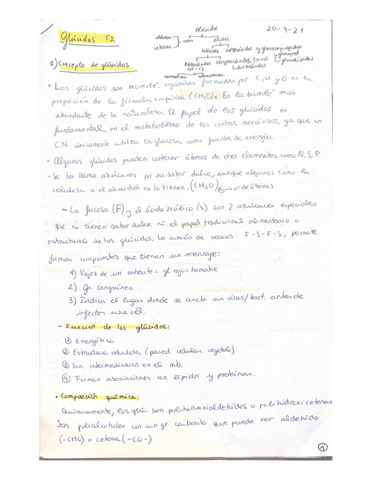 Glúcidos T.2
20-9-21
Glúcidos
osidos
1) Concepto de glúcidos
• Los glúcidos son biomoléc orgánicas formadas por C, H y O en la
proporción de la fórmula empírica (CH2O)n. Es la bioméc más
abundante de la naturaleza. El papel de los glúcidos es
fundamental en el metabolismo de los centros nerviosos, ya que un
C.N. únicamente utiliza la glucosa como fuente de energía.
• Algunos glúcidos pueden contener átomos de otros elementos como N, S, P.
• Se les llama azúcares por su sabor dulce, aunque algunos como la
celulosa o el almidón no lo tienen. (CH2O)n → nº de átomos
- La fucosa (F) y el ácido siálico (s) son 2 azúcares especiales
que no tienen sabor dulce ni el papel tradicional alimentario o
estructural de los glúcidos. La unión de varios F-S-F-S, permite
formar compuestos que tienen un mensaje:
1) Vejez de un
2) Gr. sanguíneo
3) Indica el lugar donde se ancla un virus/bact. antes de
infectar una cél.
- Función de los glúcidos:
① Energética
② Estructura celulosa (pared celular vegetal)
③ Son intermediarios en el mb.
④ Forman asociaciones con lípidos y proteínas.
• Composición química:
Químicamente, los glú son polihidroxialdehídos o polihidroxicetonas
Son polialcoholes con un gr. carbonilo que puede ser aldehído
(-CHO) o cetona (-CO-)
①